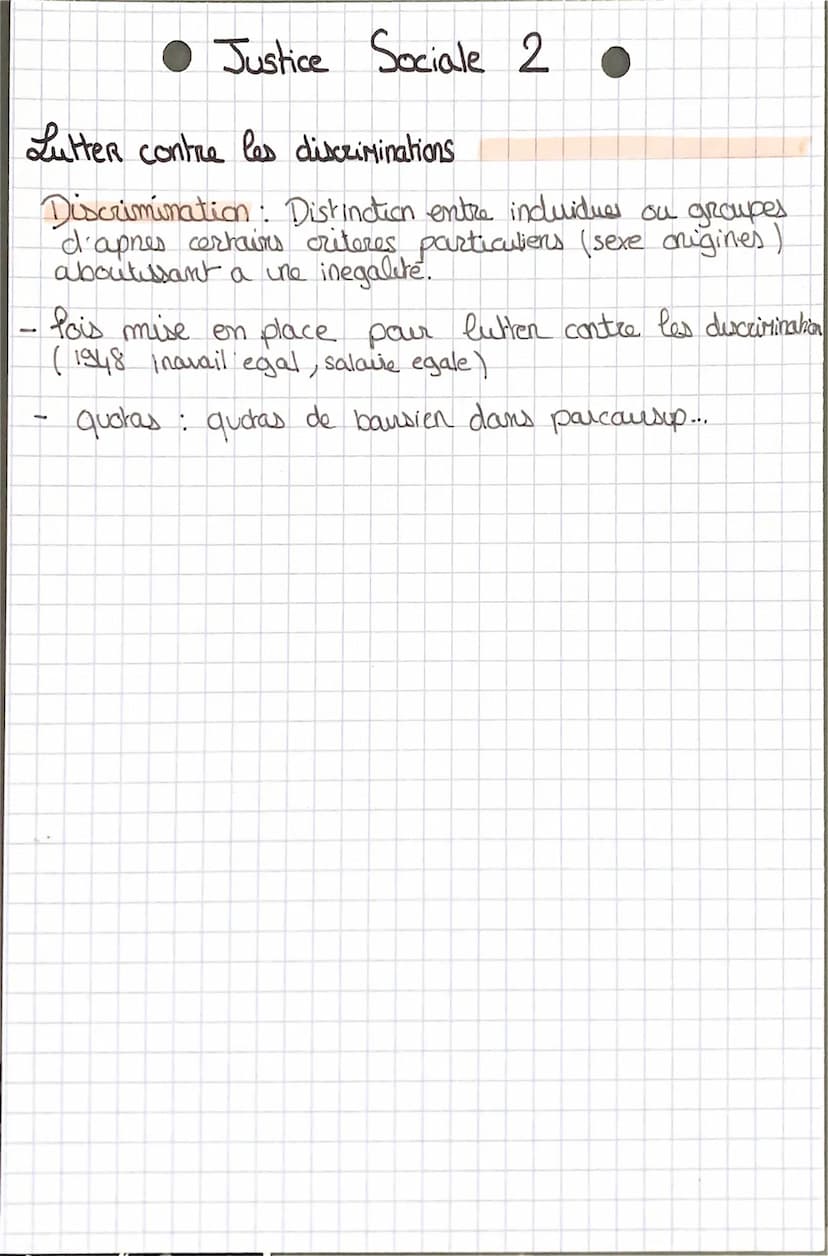 Justice Sociale 2
Lutter contre les discriminations
Discrimination : Distinction entre individues ou groupes
d'apres certains criteres particuliers (sexe origines)
aboutissant a une inegalité.
- lois mise en place pour lutter contre les discrimination
(1948 travail egal, salaire egale)
- quotas : quotas de boursier dans parcoursup...